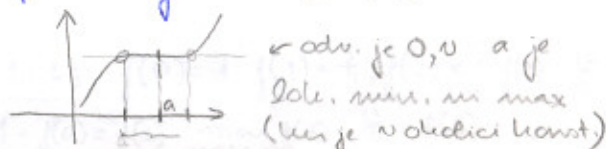 a
← odv. je 0, v a je
lok. min. in max
(ker je v okolici konst.)